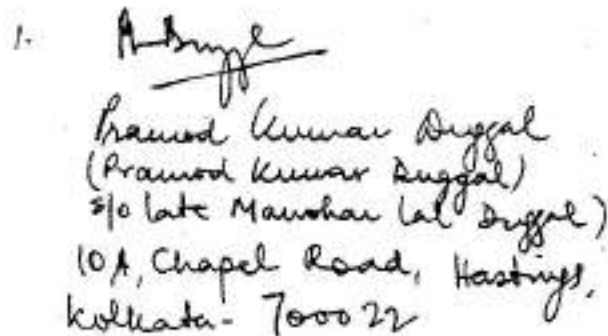 1.
Pramod Kumar Duggal
(Pramod Kumar Duggal)
s/o late Manohar Lal Duggal)
10A, Chapel Road, Hastings,
Kolkata - 700022